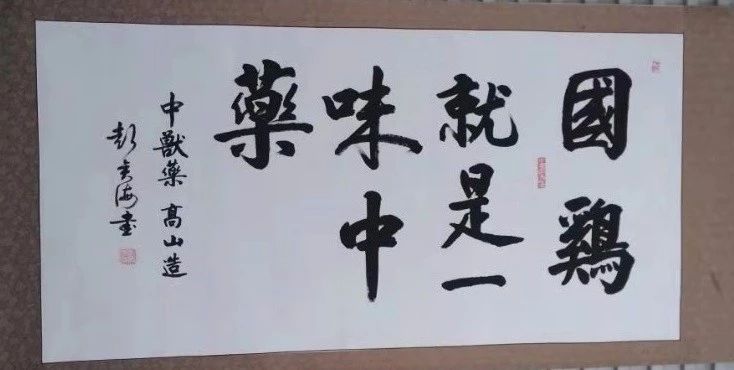 國鷄
就是一
味中
藥
中獸藥高山造
彭
海書